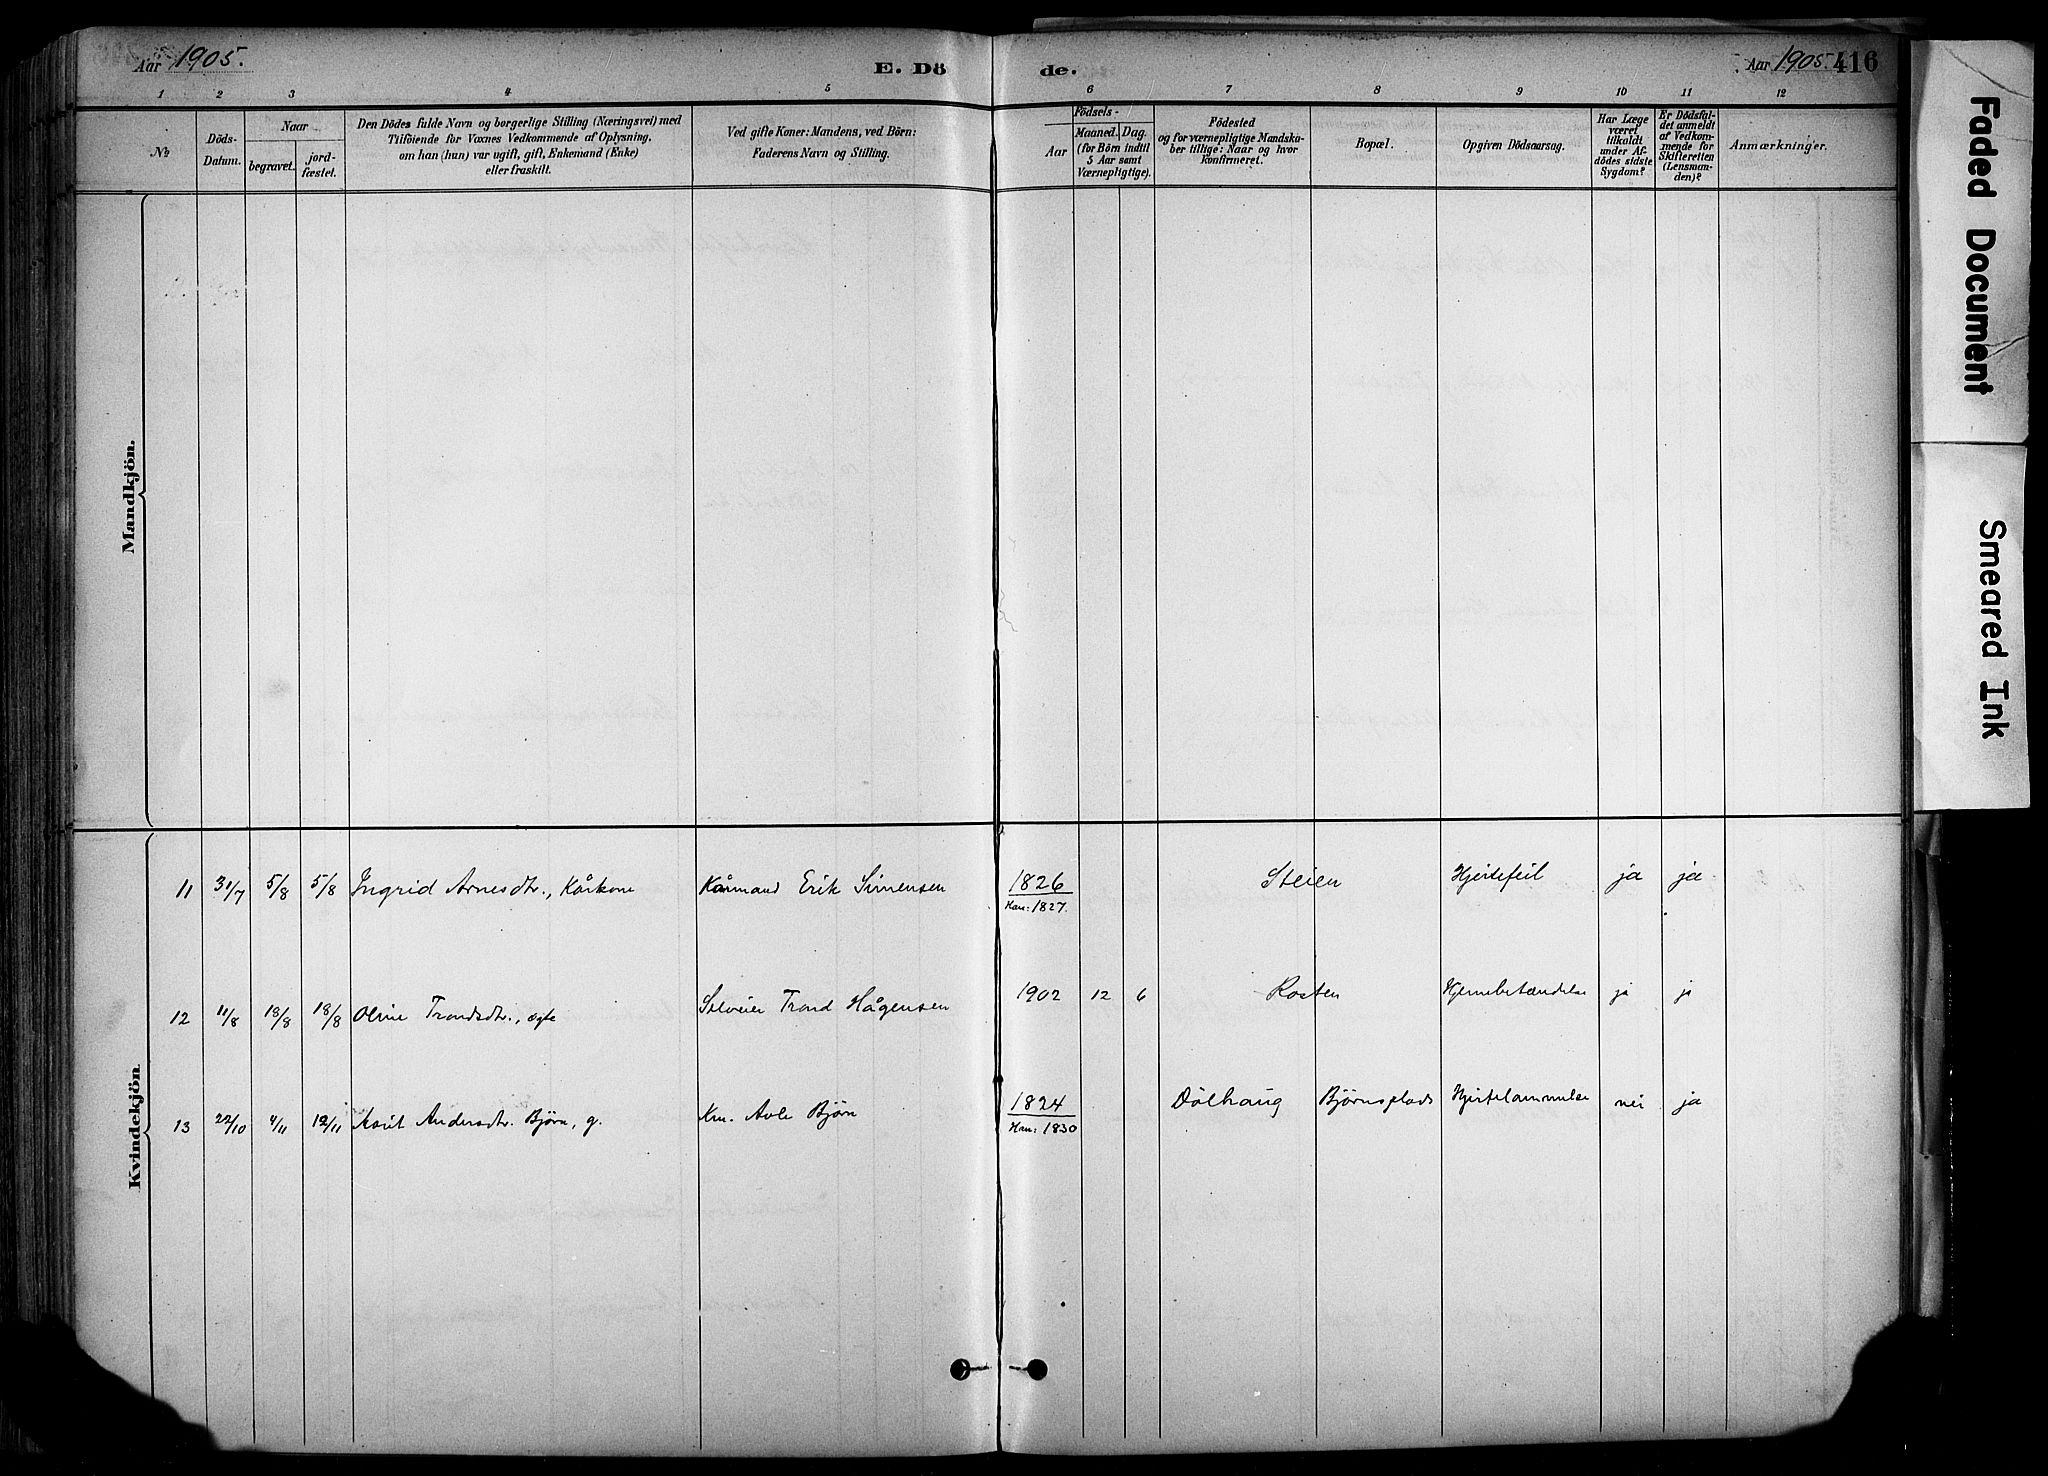 Aar 1905.
E. Dö
de.
Aar 1905. 416
1 2 3 4 5 6 7 8 9 10 11 12
№
Döds-
Datum.
Naar
begravet.
jord-
fæstet.
Den Dödes fulde Navn og borgerlige Stilling (Næringsvei) med
Tilföiende for Voxnes Vedkommende af Oplysning,
om han (hun) var ugift, gift, Enkemand (Enke)
eller fraskilt.
Ved gifte Koner: Mandens, ved Börn:
Faderens Navn og Stilling.
Födsels-
Aar
Maaned. Dag.
(for Börn indtil
5 Aar samt
Værnepligtige).
Födested
og for værnepligtige Mandska-
ber tillige: Naar og hvor
Konfirmeret.
Bopæl.
Opgiven Dödsaarsag.
Har Læge
været
tilkaldt
under Af-
dödes sidste
Sygdom?
Er Dödsfal-
det anmeldt
af Vedkom-
mende for
Skifteretten
(Lensman-
den)?
Anmærkninger.
Mandkjön.
Kvindekjön.
11 31/7 5/8 5/8 Ingrid Arnesdtr., Kårkone Kårmand Erik Simensen 1826 Steien Hjertefeil ja ja
Han: 1827.
12 11/8 18/8 18/8 Oline Trondsdtr., ægte Selveier Trond Hågensen 1902 12 6 Rosten Hjernebetændelse ja ja
13 22/10 4/11 12/11 Marit Andersdtr. Bjørn, g. Km. Avle Bjørn 1824 Dølhaug Bjørnsplads Hjertelammelse nei ja
Han: 1830
Faded Document
Smeared Ink